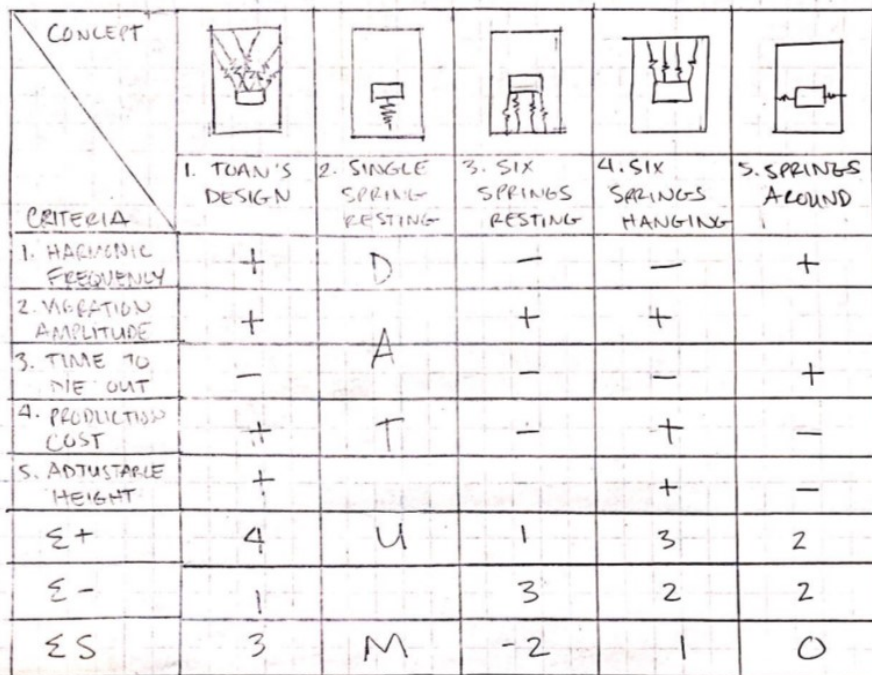 CONCEPT
CRITERIA
1. TUAN'S
DESIGN
2. SINGLE
SPRING
RESTING
3. SIX
SPRINGS
RESTING
4. SIX
SPRINGS
HANGING
5. SPRINGS
AROUND
1. HARMONIC
FREQUENLY
+ D − − +
2. VIBRATION
AMPLITUDE
+ + +
A
3. TIME TO
DIE OUT
− − − +
4. PRODUCTION
COST
+ T − + −
5. ADJUSTABLE
HEIGHT
+ + −
Σ+ 4 U 1 3 2
Σ- 1 3 2 2
ΣS 3 M -2 1 0